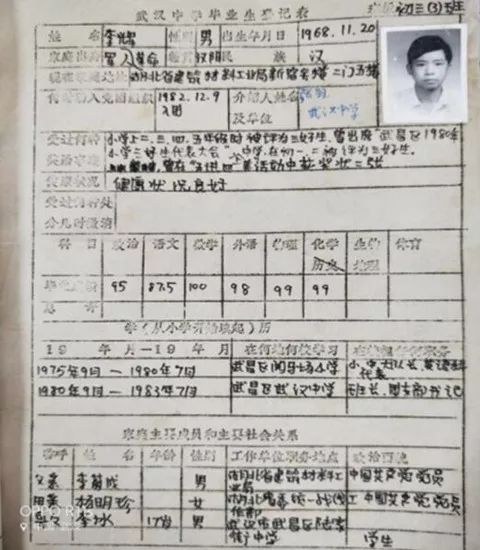 武汉中学毕业生登记表
初三(3)班
姓名 李 性别 男 出生年月日 1968.11.20
家庭出身 军人 革命 籍贯 汉阳 民族 汉
现在家庭地址 湖北省建筑材料工业局新宿舍
何时加入党团组织 1982.12.9 入团 介绍人姓名及单位 武汉中学
受过何种奖励 小学二、三、四、五年级时被评为三好生,曾出席"武昌区1980年
小学三好生代表大会",中学,在初一、二被评为三好生,
活动中获奖状二张
健康状况 健康状况良好
受过何种处分几时撤消
科目 政治 语文 数学 外语 物理 化学 生物 体育
历史 地理
95 87.5 100 98 99 99
学(从小学开始填起)历
19 年 月—19 年 月 在何地何校学习
1975年9月—1980年7月 武昌区阅马场小学 小、中大队长、英语科代表
1980年9月—1983年7月 武昌区武汉中学 班长、团支部书记
家庭主要成员和主要社会关系
称呼 姓名 年龄 性别 工作单位职务地点 政治面貌
父亲 李 男 湖北省建筑材料工业局 中国共产党党员
母亲 杨明珍 女 中国共产党党员
李冰 17岁 男 武汉市武昌区 中学 学生
OPPO R